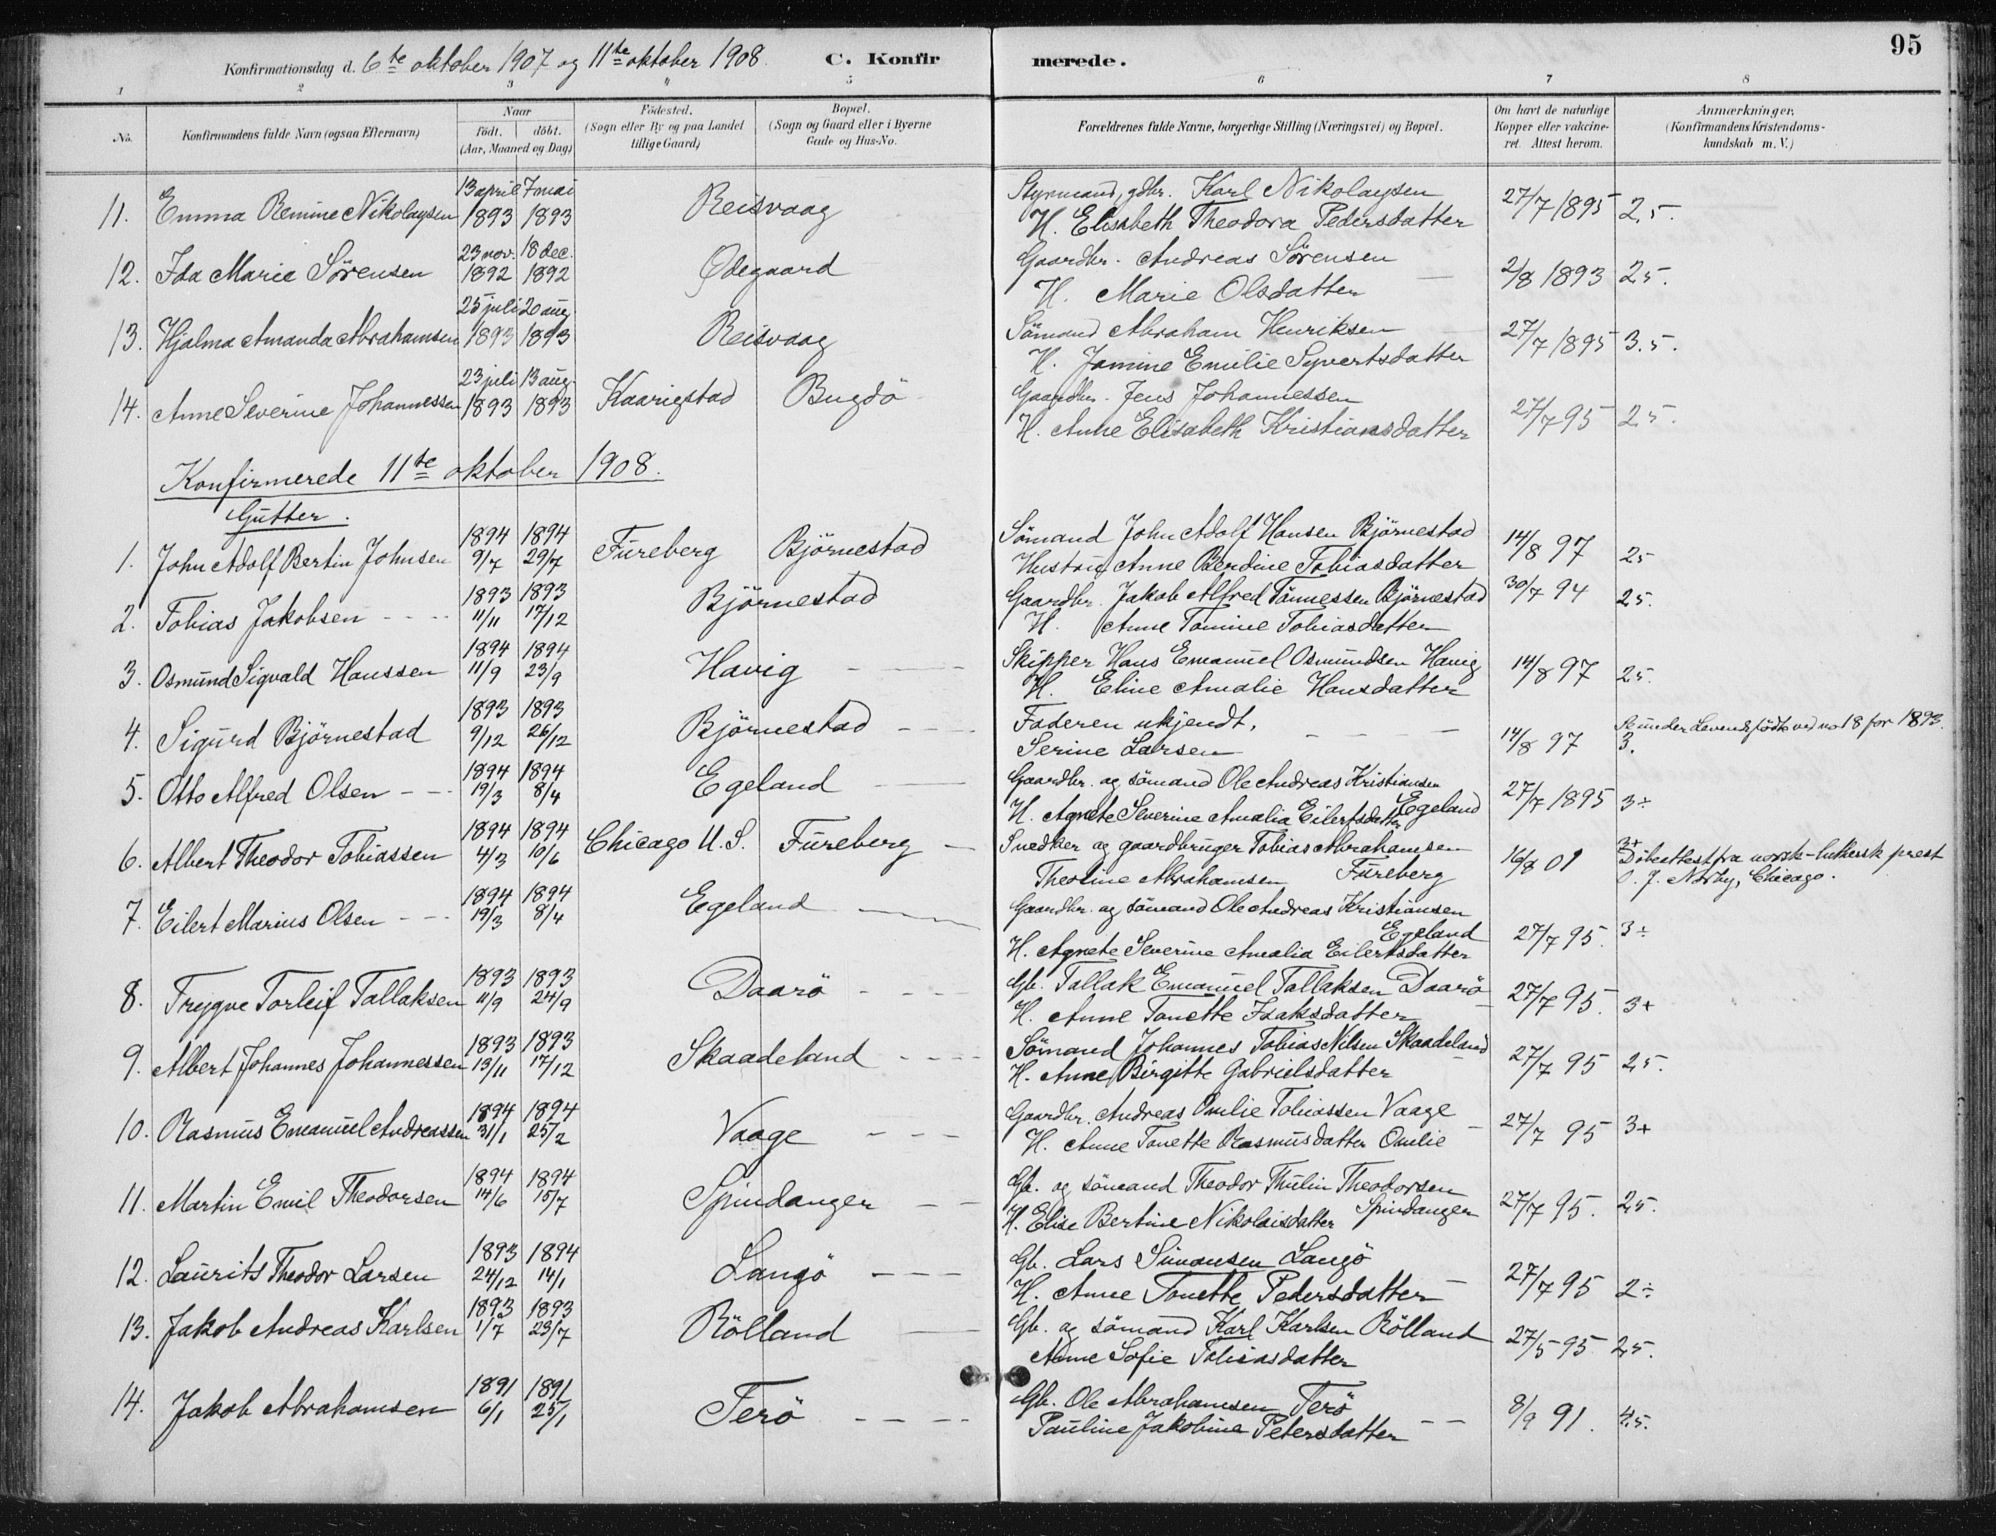 95
Konfirmationsdag d. 6te oktober 1907 og 11te oktober 1908. C. Konfirmerede.
1 2 3 4 5 6 7 8
No. Konfirmandens fulde Navn (ogsaa Efternavn) Naar födt. döbt. (Aar, Maaned og Dag) Födested. (Sogn eller By og paa Landet tillige Gaard) Bopæl. (Sogn og Gaard eller i Byerne Gade og Hus-No. Forældrenes fulde Navne, borgerlige Stilling (Næringsvei) og Bopæl. Om havt de naturlige Kopper eller vakcineret. Attest herom. Anmærkninger. (Konfirmandens Kristendomskundskab m. V.)
13 april 7 mai Styrmand, gdbr. Karl Nikolaysen
11. Emma Remine Nikolaysen 1893 1893 Reisvaag H. Elisabeth Theodora Pedersdatter 27/7 1895 2,5.
23 nov. 18 dec. Gaardbr. Andreas Sörensen
12. Ida Marie Sörensen 1892 1892 Ødegaard H. Marie Olsdatter 2/8 1893 2,5.
25 juli 20 aug. Sömand Abraham Henriksen
13. Hjalma Amanda Abrahamsen 1893 1893 Reisvaag H. Jomine Emilie Syvertsdatter 27/7 1895 3.5.
23 juli 13 aug. Gaardbr. Jens Johannessen
14. Anne Severine Johannessen 1893 1893 Kaarigstad Bugdö H. Anne Elisabeth Kristiansdatter 27/7 95 2,5.
Konfirmerede 11te oktober 1908.
Gutter.
1894 1894 Sömand John Adolf Hansen Björnestad
1. John Adolf Bertin Johnsen 9/7 29/7 Fureberg Björnestad Hustru Anne Berdine Tobiasdatter 14/8 97 2,5
1893 1893 Gaardbr. Jakob Alfred Tönnessen Björnestad
2. Tobias Jakobsen 11/11 17/12 Björnestad H. Anne Tomine Tobiasdatter 30/7 94 2,5.
1894 1894 Skipper Hans Emanuel Osmundsen Havig
3. Osmund Sigvald Hanssen 11/9 23/9 Havig H. Eline Amalie Hansdatter 14/8 97 2,5.
1893 1893 Faderen ukjendt. under Levendefödte ved no 18 for 1893.
4. Sigurd Björnestad 9/12 26/12 Björnestad Serine Larsen 14/8 97 3.
1894 1894 Gaardbr. og sömand Ole Andreas Kristiansen
5. Otto Alfred Olsen 19/3 8/4 Egeland H. Agnete Severine Amalia Eilertsdatter Egeland 27/7 1895 3÷
1894 1894 Snedker og gaardbruger Tobias Abrahamsen 3+
6. Albert Theodor Tobiassen 4/3 10/6 Chicago U.S. Fureberg Theoline Abrahamsen Fureberg 16/8 01 Döbeattest fra norsk-luthersk prest O. J. Norby, Chicago.
1894 1894 Gaardbr. og sömand Ole Andreas Kristiansen Egeland
7. Eilert Marius Olsen 19/3 8/4 Egeland H. Agnete Severine Amalia Eilertsdatter 27/7 95. 3÷
1893 1893 Gb. Tallak Emanuel Tallaksen Daarö
8. Trygve Torleif Tallaksen 11/9 24/9 Daarö H. Anne Tonette Isaksdatter 27/7 95. 3+
1893 1893 Sömand Johannes Tobias Nilsen Skaadeland
9. Albert Johannes Johannessen 13/11 17/12 Skaadeland H. Anne Birgitte Gabrielsdatter 27/7 95 2,5.
1894 1894 Gaardbr. Andreas Omlie Tobiassen Vaage
10. Rasmus Emanuel Andreassen 31/1 25/2 Vaage H. Anne Tonette Rasmusdatter Omlie 27/7 95 3+
1894 1894 Gb. og sömand Theodor Thulin Theodorsen
11. Martin Emil Theodorsen 14/6 15/7 Spindanger H. Elise Bertine Nikolaisdatter Spindanger 27/7 95. 2,5.
1893 1894 Gb. Lars Simonsen Langö
12. Laurits Theodor Larsen 24/12 14/1 Langö H. Anne Tonette Pedersdatter 27/7 95 2÷
1893 1893 Gb. og sömand Karl Karlsen Rölland
13. Jakob Andreas Karlsen 1/7 23/7 Rölland Anne Sofie Tobiasdatter 27/5 95 2,5.
1891 1891 Gb. Ole Abrahamsen Terö
14. Jakob Abrahamsen 6/1 25/1 Terö Pauline Jakobine Petersdatter 8/9 91. 4,5.